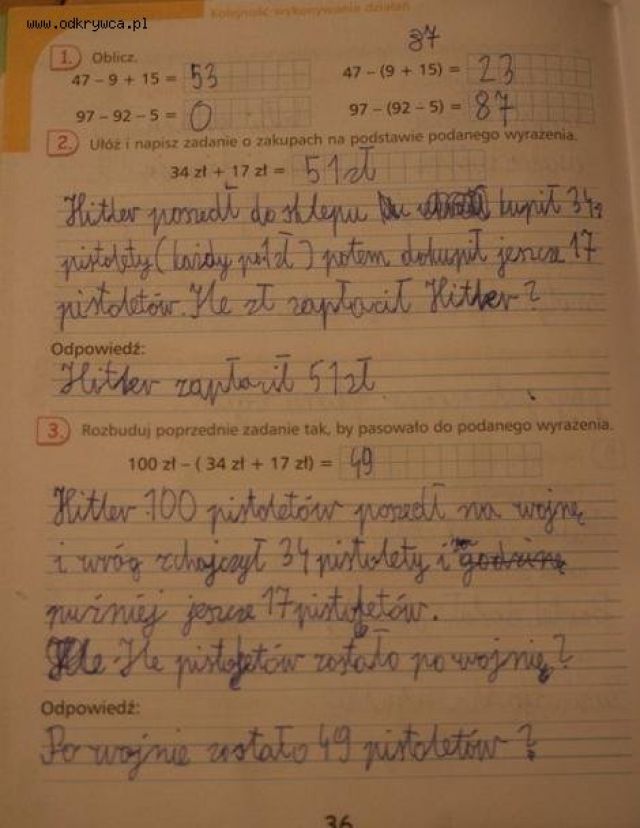 www.odkrywca.pl
Kolejność wykonywania działań
37
1. Oblicz.
47 – 9 + 15 = 53 47 – (9 + 15) = 23
97 – 92 – 5 = 0 97 – (92 – 5) = 87
2. Ułóż i napisz zadanie o zakupach na podstawie podanego wyrażenia.
34 zł + 17 zł = 51 zł
Hitler poszedł do sklepu kupił 34
pistolety (każdy po 1 zł) potem dokupił jeszcze 17
pistoletów. Ile zł zapłacił Hitler?
Odpowiedź:
Hitler zapłacił 51 zł
3. Rozbuduj poprzednie zadanie tak, by pasowało do podanego wyrażenia.
100 zł – ( 34 zł + 17 zł) = 49
Hitler 100 pistoletów poszedł na wojnę
i wróg zchajczył 34 pistolety i godzinę
puźniej jeszcze 17 pistoletów.
Ile Ile pistoletów zostało po wojnię?
Odpowiedź:
Po wojnie zostało 49 pistoletów?
36